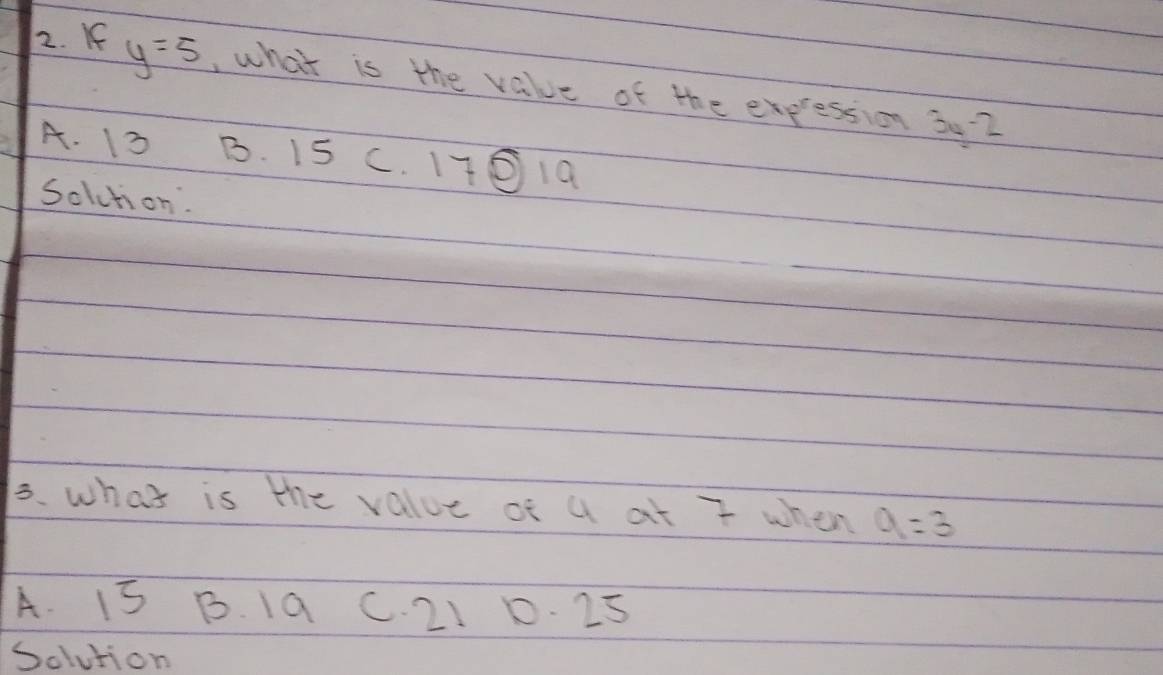 2. If y=5, what is the value of the expression 3y-2
A. 13 B. 15 C. 17 D 19
Solution:
3. What is the value of 4 at 7 when a=3
A. 15 B. 19 C. 21 D. 25
Solution